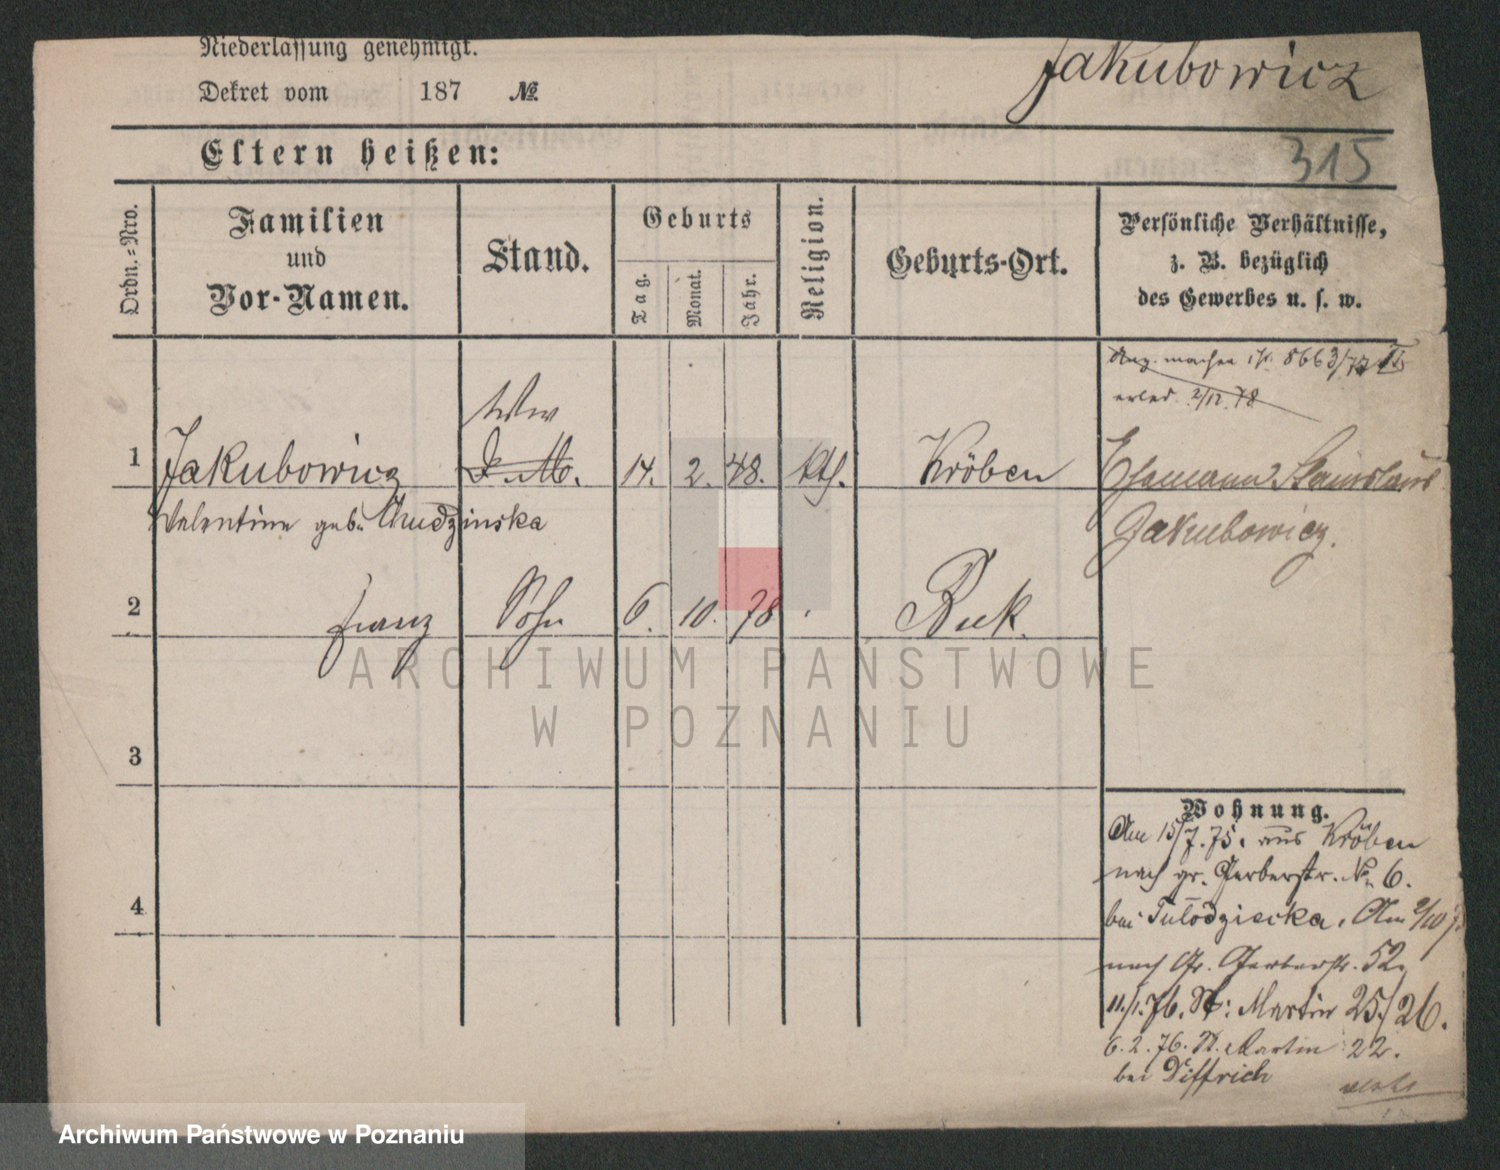 Niederlassung genehmigt.
Dekret vom 187 №
Jakubowicz
315
Eltern heißen:
Ordn.-Nro.
Familien
und
Vor-Namen.
Stand.
Geburts
Tag.
Monat.
Jahr.
Religion.
Geburts-Ort.
Persönliche Verhältnisse,
z. B. bezüglich
des Gewerbes u. s. w.
machen 8663/78 II
erled. 2/12. 78
Wwe
1 Jakubowicz D. M. 14. 2. 48. kth. Kröben Ehemann Stanislaus
Valentine geb. Chudzinska Jakubowicz.
2 Franz Sohn 6. 10. 78 Buk.
ARCHIWUM PAŃSTWOWE
W POZNANIU
3
4
Wohnung.
Am 15/7. 75. aus Kröben
nach gr. Gerberstr. No 6.
bei Tulodziecka. Am 2/10
nach Gr. Gerberstr. 52.
11./1. 76. St: Martin 25/26.
6. 2. 76. St. Martin 22.
bei Diffrich
Archiwum Państwowe w Poznaniu